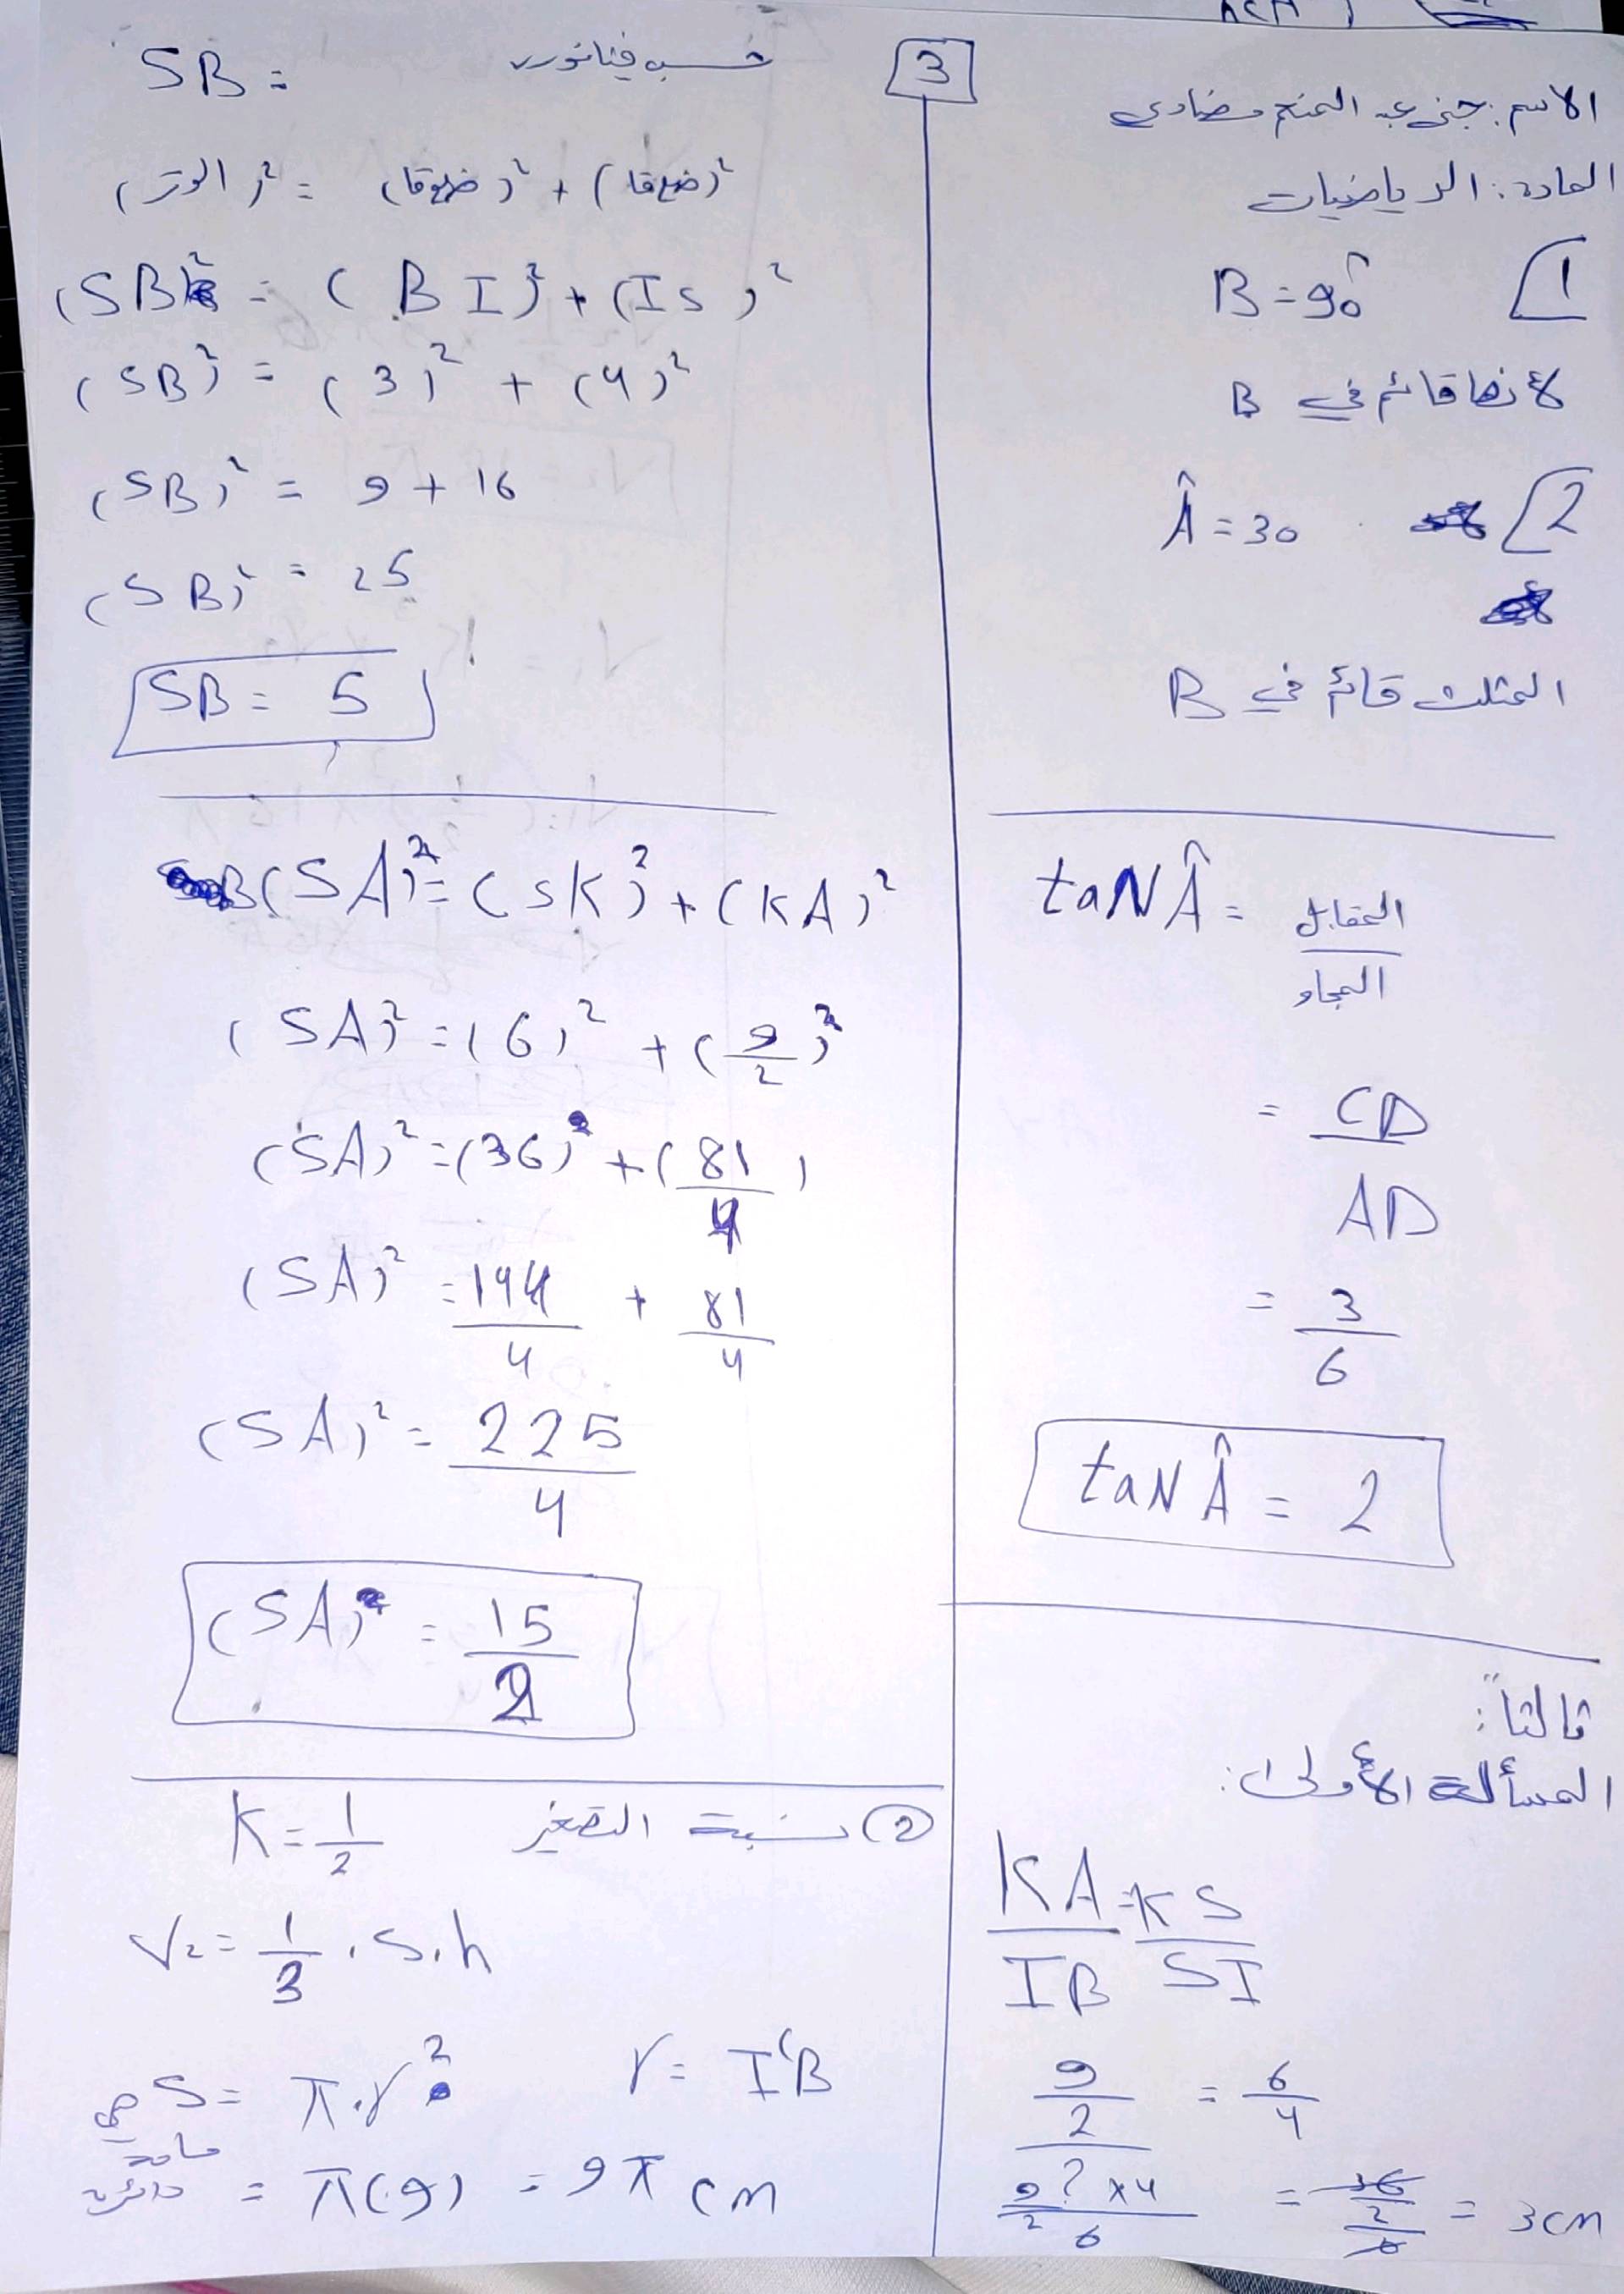 الاسم: جنى عبد المنعم رمضان
المادة: الرياضيات
1
B̂ = 90
لأنها قائم في B
2 Â = 30
المثلث قائم في B
taN Â = المقابل / المجاو
= CD / AD
= 3 / 6
taN Â = 2
ثالثاً:
المسألة الأولى:
KA / IB = KS / SI
9/2 / ? = 6 / 4
9/2 × 4 / 6 = 3 cm
3
SB = حسب فيثاغورث
(الوتر)² = (ضلع قا)² + (ضلع قا)²
(SB)² = (BI)² + (IS)²
(SB)² = (3)² + (4)²
(SB)² = 9 + 16
(SB)² = 25
SB = 5
(SA)² = (SK)² + (KA)²
(SA)² = (6)² + (9/2)²
(SA)² = (36) + (81/4)
(SA)² = 144/4 + 81/4
(SA)² = 225/4
(SA) = 15/2
② نسبة التصغير K = 1/2
V₂ = 1/3 . S . h
S = π.r² r = IB
= π(9) = 9π cm